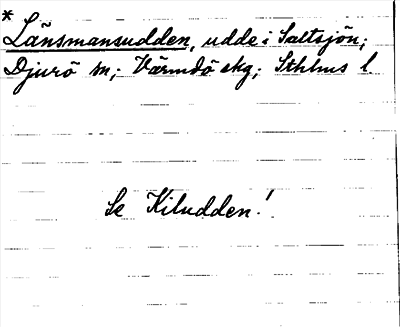 *
Länsmansudden, udde i Saltsjön;
Djurö sn; Värmdö skg; Sthlms l.
Se Kiludden!